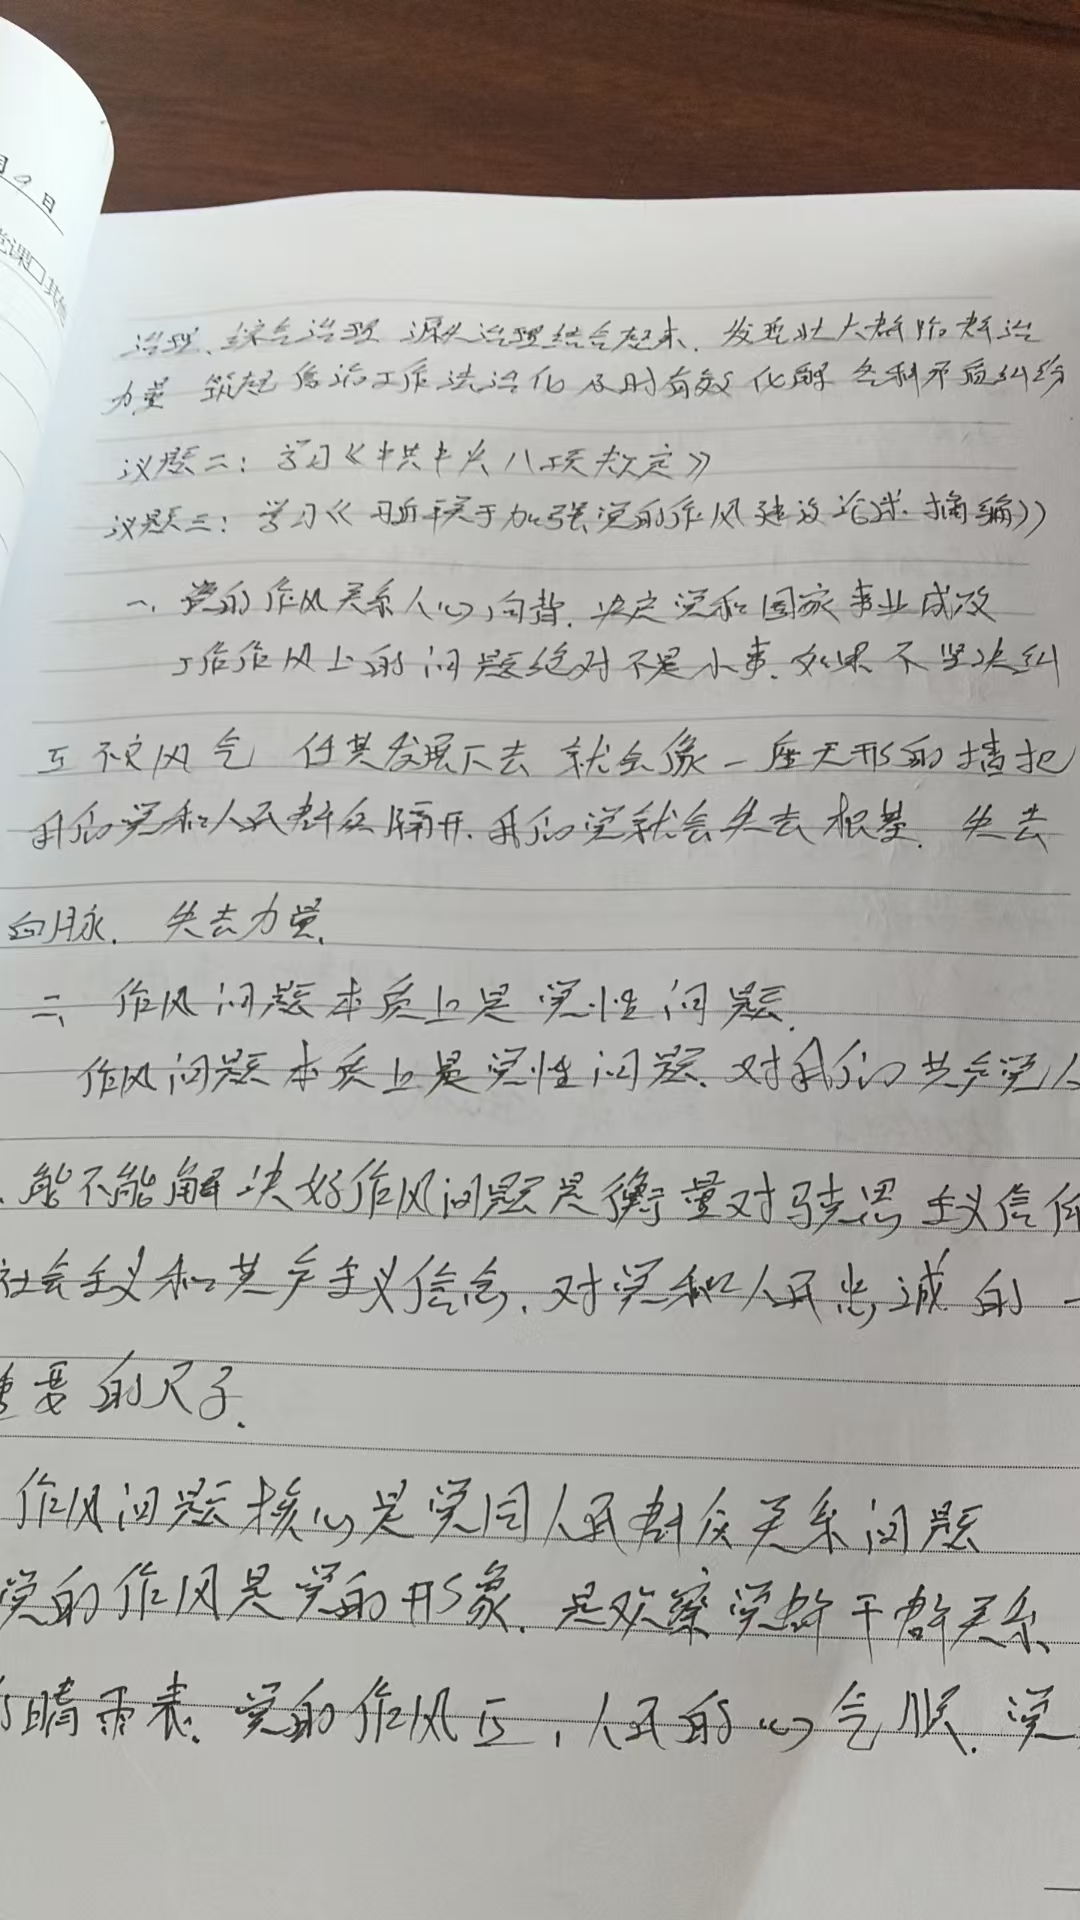 月9日
党课□其他
治理、综合治理 源头治理结合起来、发展壮大群防群治
力量 筑起 信访工作法治化 及时有效 化解 各种矛盾纠纷
议题二：学习《中共中央八项规定》
议题三：学习《习近平关于加强党的作风建设论述摘编》
一、党的作风关系人心向背、决定党和国家事业成败
工作作风上的问题绝对不是小事、如果不坚决纠
正不良风气 任其发展下去 就会像一座无形的墙把
我们党和人民群众隔开、我们党就会失去根基、失去
血脉、失去力量.
二、作风问题本质上是党性问题.
作风问题本质上是党性问题、对我们共产党人
、能不能解决好作风问题是衡量对马克思主义信仰
社会主义和共产主义信念、对党和人民忠诚的一
重要的尺子.
作风问题核心是党同人民群众关系问题
党的作风是党的形象、是观察党群干群关系
的晴雨表、党的作风正，人民的心气顺、党